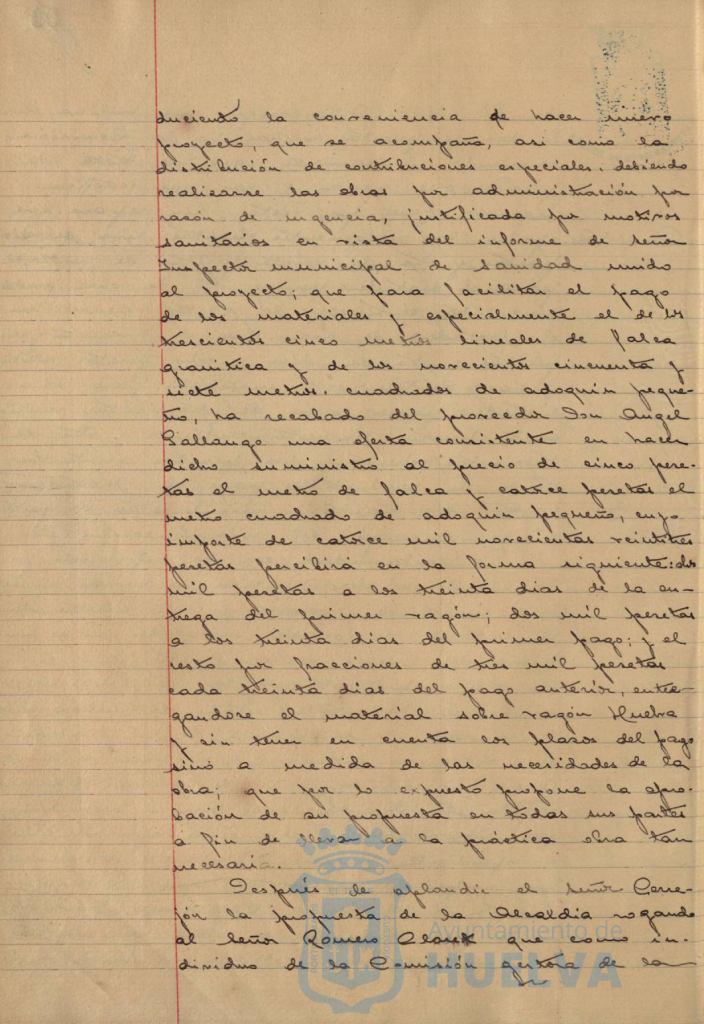 duciento la conveniencia de hacer nuevo
proyecto, que se acompaña, asi como la
distribución de contribuciones especiales, debiendo
realizarse las obras por administración por
razón de urgencia, justificada por motivos
sanitarios en vista del informe de Señor
Inspector municipal de Sanidad unido
al proyecto; que para facilitar el pago
de los materiales y especialmente el de los
trescientos cinco metros lineales de falca
granitica y de los novecientos cincuenta y
siete metros. cuadrados de adoquin peque-
ño, ha recabado del proveedor Don Angel
Gallango una oferta consistente en hacer
dicho suministro al precio de cinco pese-
tas el metro de falca y catorce pesetas el
metro cuadrado de adoquin pequeño, cuyo
importe de catorce mil novecientas veintitres
pesetas percibirá en la forma siguiente: dos
mil pesetas a los treinta dias de la en-
trega del primer vagón; dos mil pesetas
a los treinta dias del primer pago; y el
resto por fracciones de tres mil pesetas
cada treinta dias del pago anterior, entre-
gandose el material sobre vagón Huelva
y sin tener en cuenta los plazos del pago
sinó a medida de las necesidades de la
obra; que por lo expuesto propone la apro-
bación de su propuesta en todas sus partes
a fin de llevar a la práctica obra tan
necesaria.
Después de aplaudir el Señor Cerre-
jón la propuesta de la Alcaldia rogando
al Señor Romero que como in-
dividuo de la Comisión gestora de la
Ayuntamiento de
HUELVA